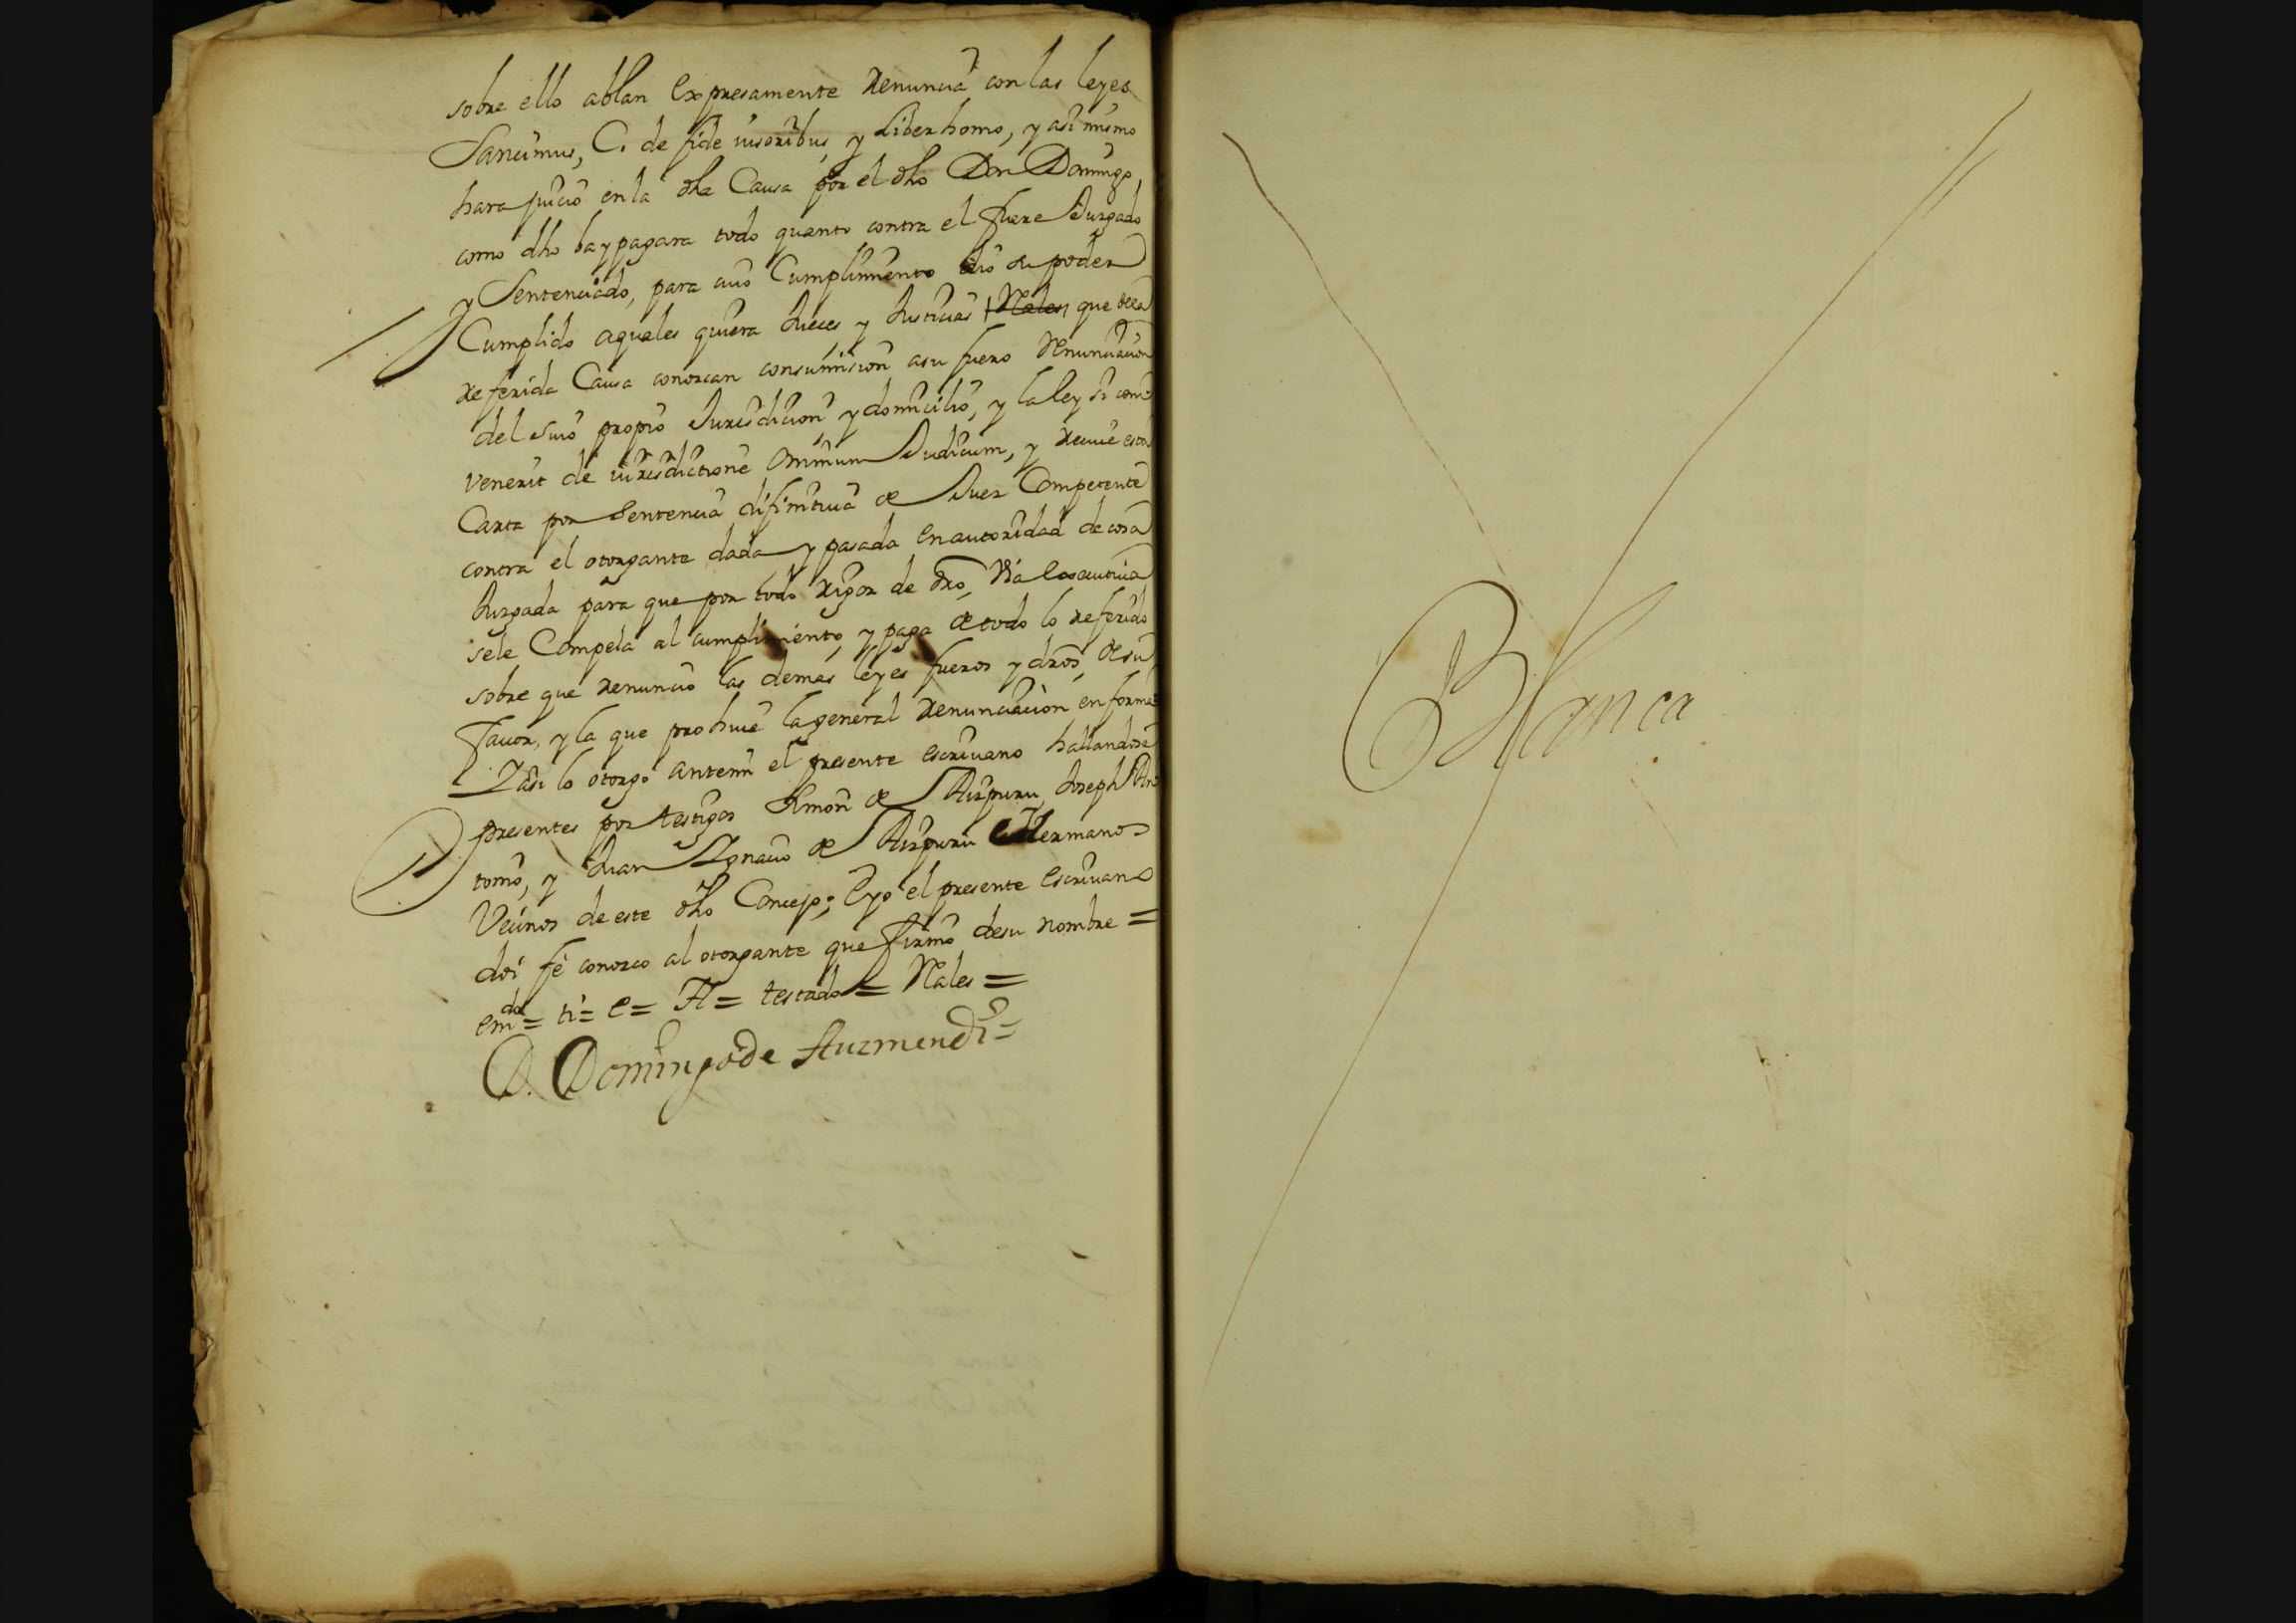 sobre ello ablan expresamente renuncia con las leyes
Sancimus, C. de fide iusoribus, y Liber homo, y asi mismo
hara juicio en la dha Causa por el dho Don Domingo,
como dho ba y pagara todo quanto contra el fuere Jusgado
y Sentenciado, para cuio Cumplimiento dio su poder
Cumplido aquales quiera Jueces y Justicias Rales que dela
referida Causa conozcan consumision asu fuero renunciacion
del suio propio Jurisdicion y domicilio, y la ley si con
venerit de iurisdictione Omnium Judicum, y reciue esta
Carta por Sentencia difinitiua de Juez Competente
contra el otorgante dada y pasada en autoridad de cosa
Juzgada para que por todo rigor de dro, Via executiua
sele Compela al cumplimiento, y paga de todo lo referido
sobre que renuncio las demas leyes fueros y dros, de su
fauor, y la que prohiue la general renunciacion en forma
Y asi lo otorgo antemi el presente escriuano hallandose
presentes por testigos Simon de Aizpuru, Joseph An
tonio, y Juan Ignacio de Aizpuru Hermanos
Vecinos de este dho Concejo; E yo el presente escriuano
doi fè conozco al otorgante que firmò de su nombre =
em.do = ti = e = H = testado = Rales =
D. Domingo de Auzmendi =
Blanca